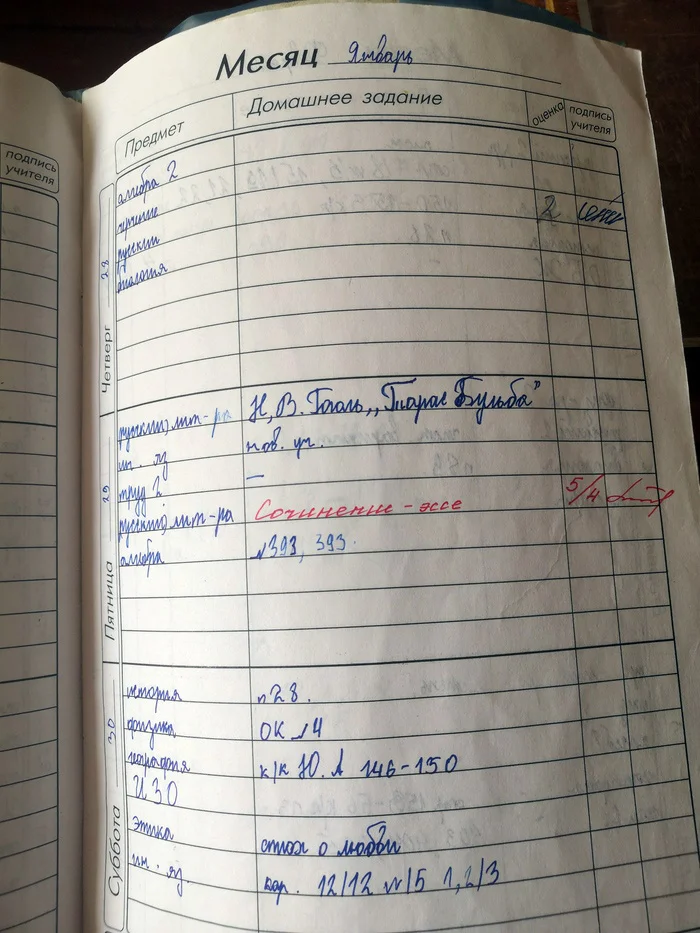 подпись
учителя
Месяц Январь
Предмет Домашнее задание оценка подпись
учителя
Четверг 28
алгебра 2
2
русский
биология
Пятница 29
русский, лит-ра Н. В. Гоголь „Тарас Бульба”
ин. яз нов. уч.
труд 2 —
русский, лит-ра Сочинение - эссе 5/4
алгебра №393, 393.
Суббота 30
история п 28.
физика ОК №4
география к/к Ю. А 146-150
ИЗО
этика стих о любви
ин. яз кар. 12/12 №/5 1,2/3